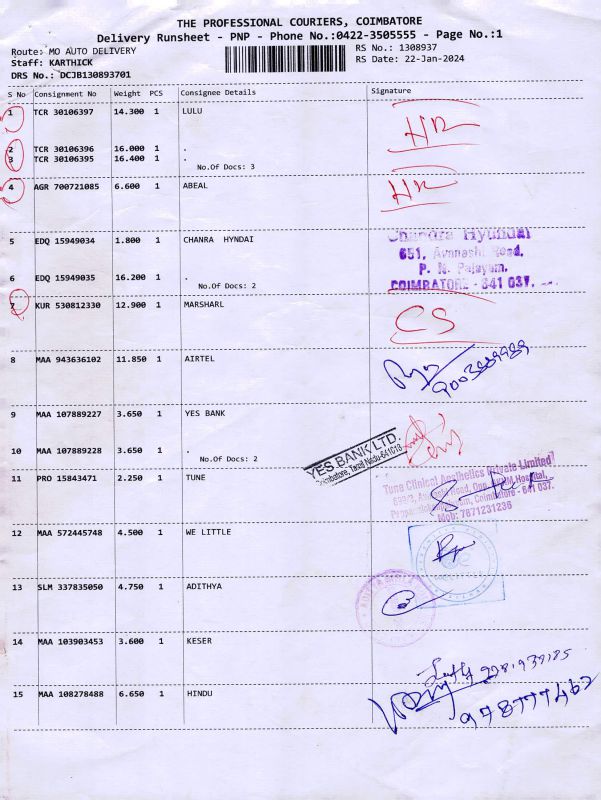 THE PROFESSIONAL COURIERS, COIMBATORE
Delivery Runsheet - PNP - Phone No.:0422-3505555 - Page No.:1
Route: MO AUTO DELIVERY RS No.: 1308937
Staff: KARTHICK RS Date: 22-Jan-2024
DRS No.: DCJB130893701
S No Consignment No Weight PCS Consignee Details Signature
1 TCR 30106397 14.300 1 LULU
HR
2 TCR 30106396 16.000 1 .
3 TCR 30106395 16.400 1 .
No.Of Docs: 3
4 AGR 700721085 6.600 1 ABEAL
HR
5 EDQ 15949034 1.800 1 CHANRA HYNDAI
Chandra Hyundai
651, Avanashi Road,
P. N. Palayam,
COIMBATORE - 641 037.
6 EDQ 15949035 16.200 1 .
No.Of Docs: 2
7 KUR 530812330 12.900 1 MARSHARL
CS
8 MAA 943636102 11.850 1 AIRTEL
9 MAA 107889227 3.650 1 YES BANK
YES BANK LTD.
Coimbatore, Tamil Nadu-641018
10 MAA 107889228 3.650 1 .
No.Of Docs: 2
11 PRO 15843471 2.250 1 TUNE
Tune Clinical Aesthetics Private Limited
Coimbatore - 641 037.
Mob: 7871231236
12 MAA 572445748 4.500 1 WE LITTLE
13 SLM 337835050 4.750 1 ADITHYA
14 MAA 103903453 3.600 1 KESER
15 MAA 108278488 6.650 1 HINDU